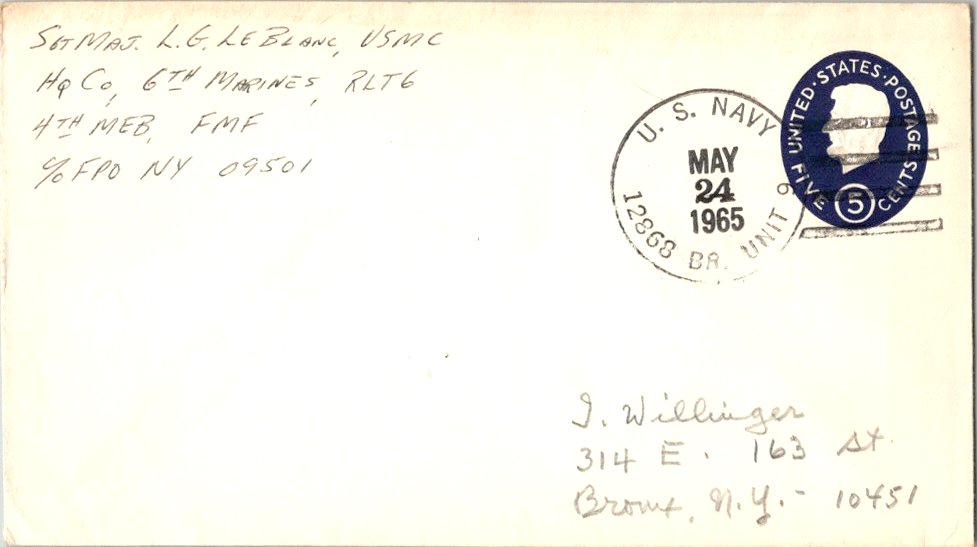 SGTMAJ. L.G. LEBLANC, USMC
HQ CO, 6TH MARINES, RLT6
4TH MEB, FMF
c/o FPO NY 09501
U. S. NAVY
MAY
24
1965
12868 BR. UNIT 9
UNITED·STATES·POSTAGE
FIVE 5 CENTS
I. Willinger
314 E. 163 St.
Bronx, N.Y.- 10451